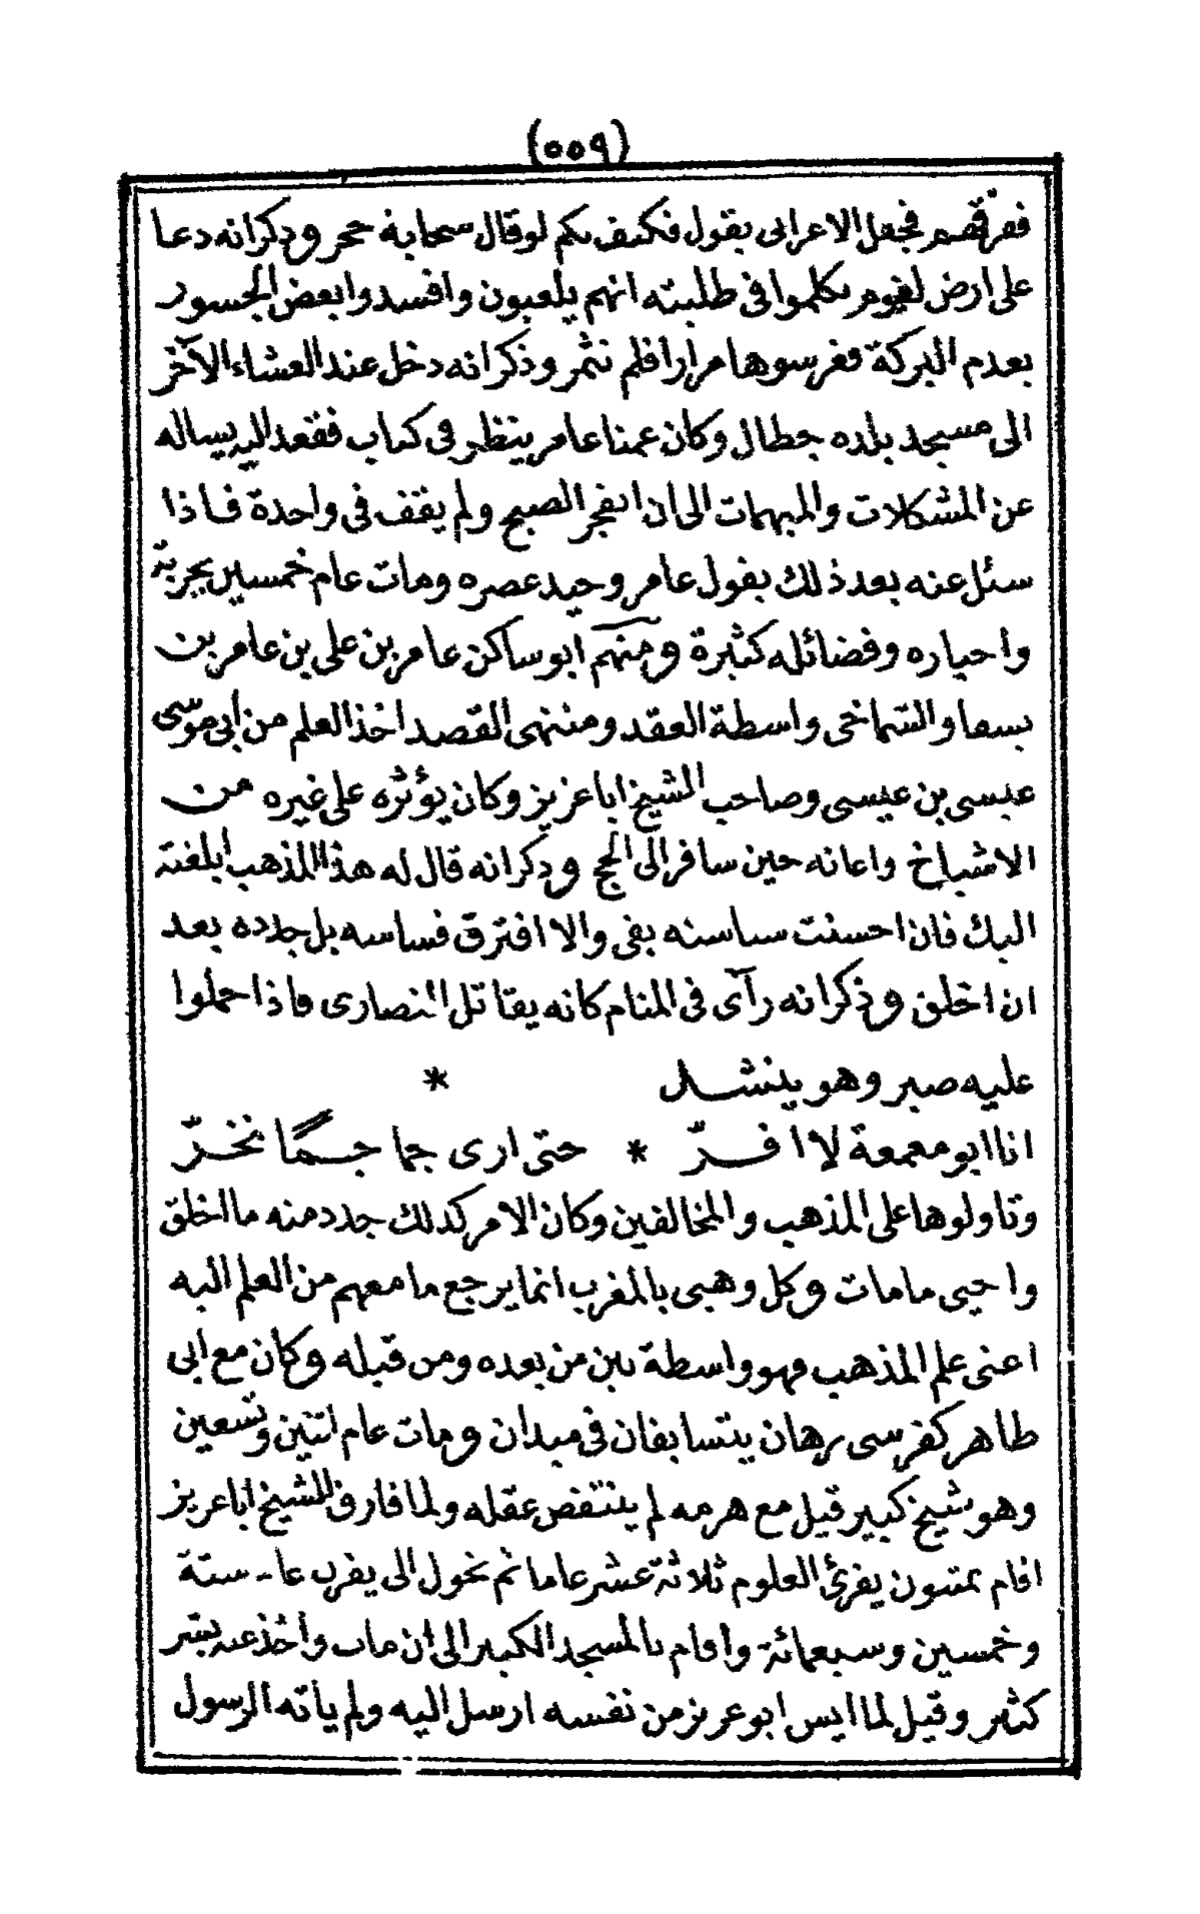 (٥٥٩)
ففرقتهم فجعل الاعرابى يقول فكيف بكم لو قال سحابة حجر وذكر انه دعا
على ارض لقوم تكلموا فى طلبته انهم يلعبون وافسدوا بعض الجسور
بعدم البركة فغرسوها مرارا فلم تثمر وذكر انه دخل عند العشاء الآخر
الى مسجد بلده جطال وكان عمنا عامر ينظر فى كتاب فقعد اليه يساله
عن المشكلات والمبهمات الى ان انفجر الصبح ولم يقف فى واحدة فاذا
سئل عنه بعد ذلك يقول عامر وحيد عصره ومات عام خمسين بجربة
واخباره وفضائله كثيرة ومنهم ابو ساكن عامر بن على بن عامر بن
يسفاو الشماخى واسطة العقد ومنتهى القصد اخذ العلم من ابى موسى
عيسى بن عيسى وصاحب الشيخ ابا عزيز وكان يؤثره على غيره من
الاشياخ واعانه حين سافر الى الحج وذكر انه قال له هذا المذهب ابلغته
اليك فان احسنت سياسته بقى والا افترق فساسه بل جدده بعد
ان اخلق وذكر انه رآى فى المنام كانه يقاتل النصارى فاذا حملوا
عليه صبر وهو ينشد *
انا ابو معمعة لا افرّ * حتى ارى جما جمًا تخرّ
وتاولوها على المذهب والمخالفين وكان الامر كذلك جدد منه ما اخلق
واحيى ما مات وكل وهبى بالمغرب انما يرجع ما معهم من العلم اليه
اعنى علم المذهب فهو واسطة بين من بعده ومن قبله وكان مع ابى
طاهر كفرسى رهان يتسابقان فى ميدان ومات عام اثنين وتسعين
وهو شيخ كبير قيل مع هرمه لم ينتقص عقله ولما فارق الشيخ ابا عزيز
اقام بمتيون يقرئ العلوم ثلاثة عشر عاما ثم تحول الى يفرن عام ستة
وخمسين وسبعمائة واقام بالمسجد الكبير الى ان مات واخذ عنه بشر
كثير وقيل لما ايس ابو عزيز من نفسه ارسل اليه ولم ياته الرسول